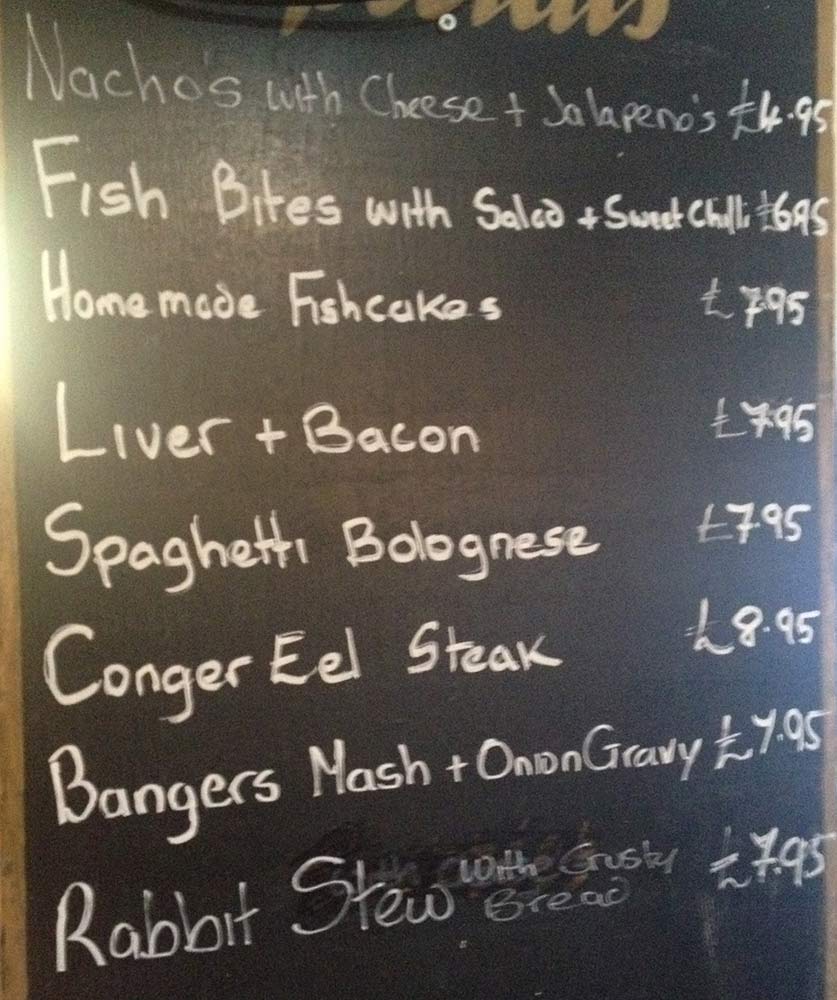 Nacho's with Cheese + Jalapeno's £4.95
Fish Bites with Salad + Sweet Chilli £6.95
Homemade Fishcakes £7.95
Liver + Bacon £7.95
Spaghetti Bolognese £7.95
Conger Eel Steak £8.95
Bangers Mash + Onion Gravy £7.95
Rabbit Stew with Crusty Bread £7.95